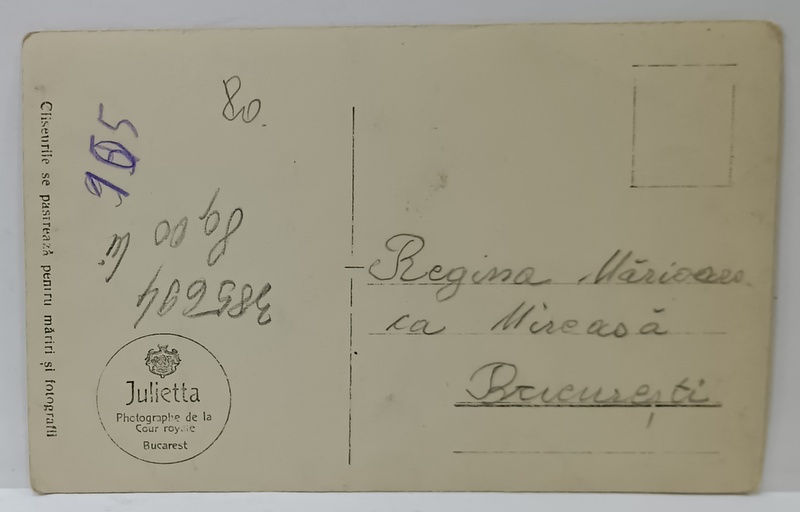 Clișeurile se păstrează pentru măriri și fotografii
80.
905
89,00 lei
385694
Julietta
Photographe de la
Cour royale
Bucarest
Regina Mărioara
ca Mireasă
București